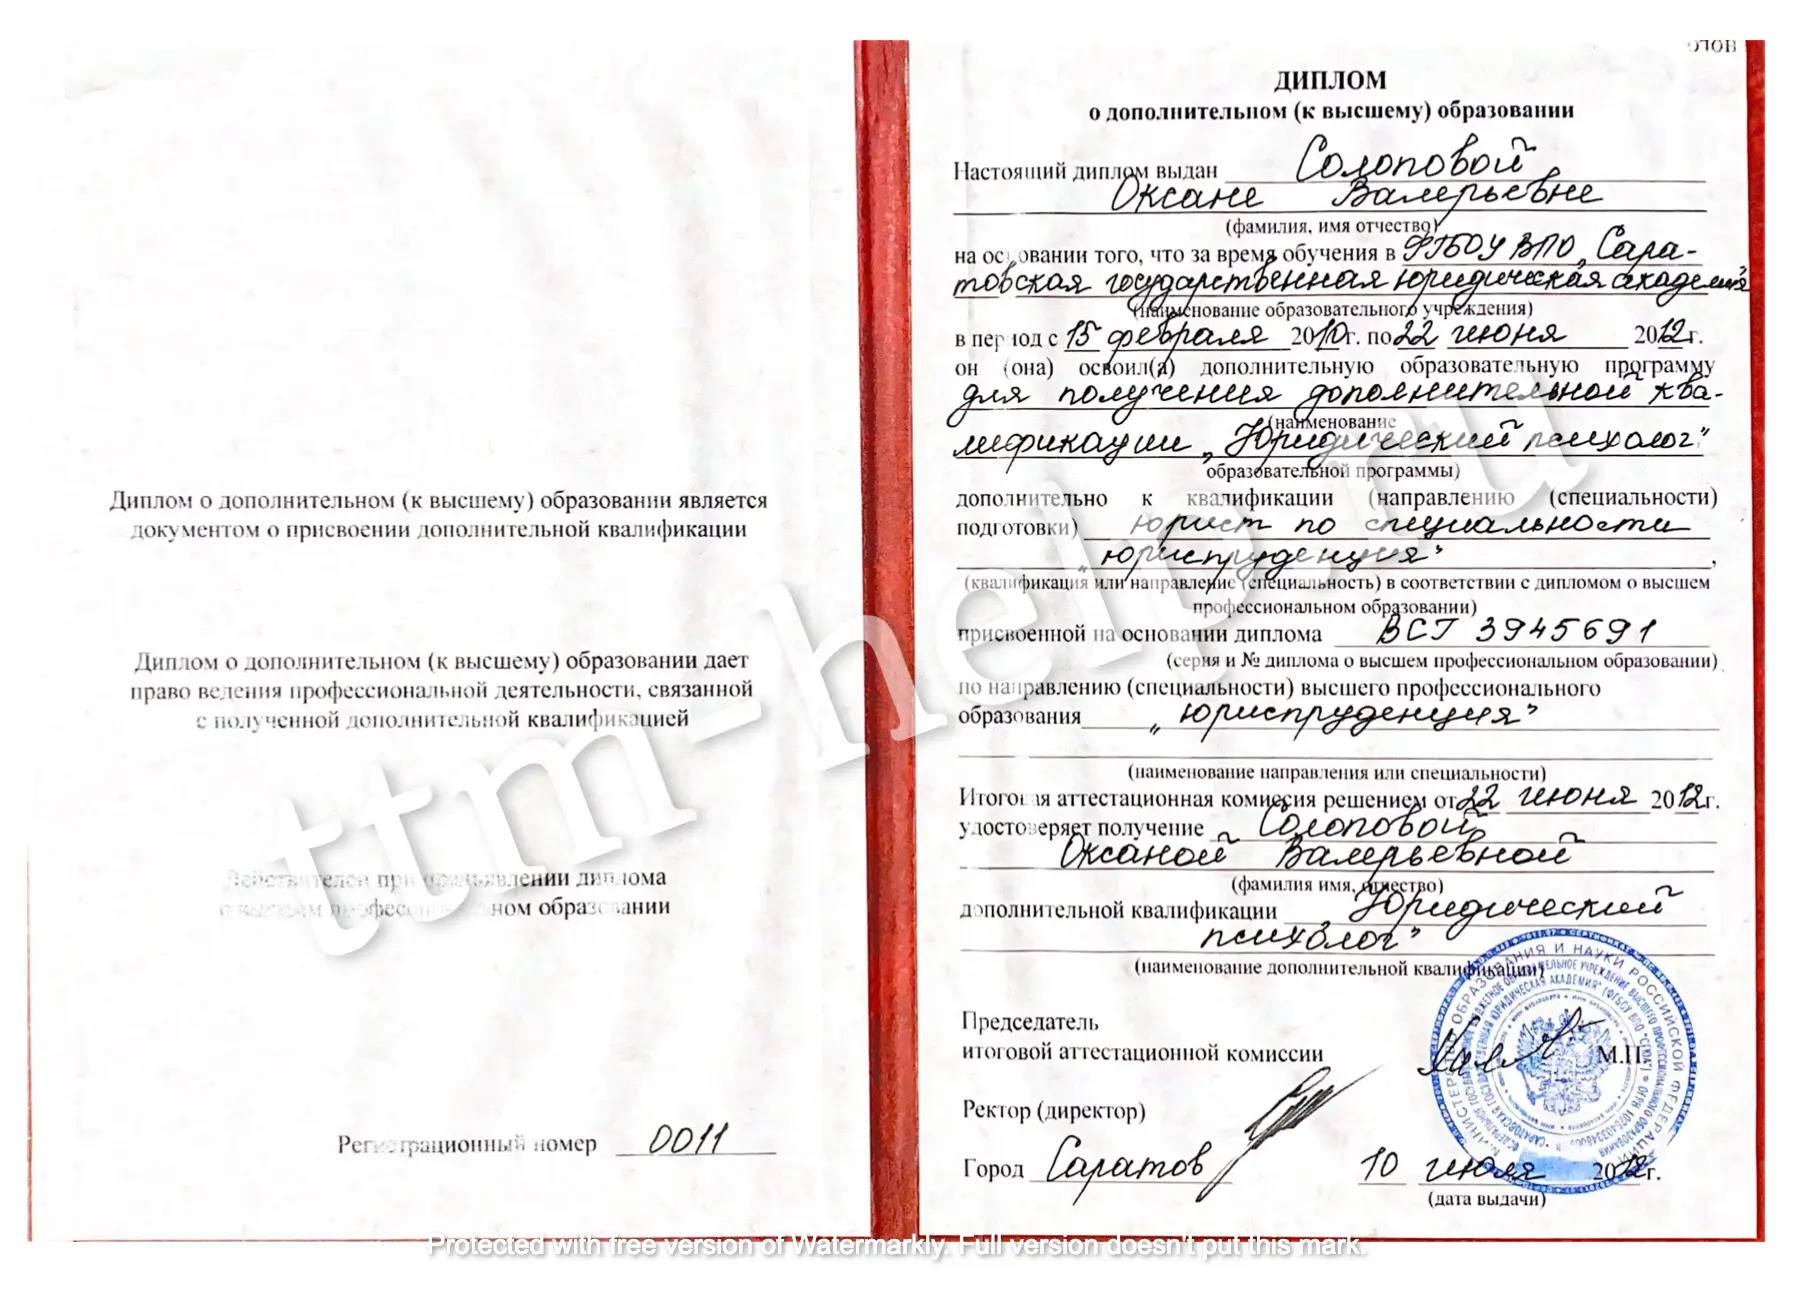 Диплом о дополнительном (к высшему) образовании является
документом о присвоении дополнительной квалификации
Диплом о дополнительном (к высшему) образовании дает
право ведения профессиональной деятельности, связанной
с полученной дополнительной квалификацией
Действителен при предъявлении диплома
о высшем профессиональном образовании
Регистрационный номер 0011
ДИПЛОМ
о дополнительном (к высшему) образовании
Настоящий диплом выдан Солоповой
Оксане Валерьевне
(фамилия, имя отчество)
на основании того, что за время обучения в ФГБОУ ВПО „Сара-
товская государственная юридическая академия"
(наименование образовательного учреждения)
в период с 15 февраля 2010г. по 22 июня 2012г.
он (она) освоил(а) дополнительную образовательную программу
для получения дополнительной ква-
(наименование
лификации „Юридический психолог"
образовательной программы)
дополнительно к квалификации (направлению (специальности)
подготовки) юрист по специальности
„юриспруденция",
(квалификация или направление (специальность) в соответствии с дипломом о высшем
профессиональном образовании)
присвоенной на основании диплома ВСГ 3945691
(серия и № диплома о высшем профессиональном образовании)
по направлению (специальности) высшего профессионального
образования „юриспруденция"
(наименование направления или специальности)
Итоговая аттестационная комиссия решением от 22 июня 2012г.
удостоверяет получение Солоповой
Оксаной Валерьевной
(фамилия имя, отчество)
дополнительной квалификации „Юридический
психолог"
(наименование дополнительной квалификации)
Председатель
итоговой аттестационной комиссии
М.П.
Ректор (директор)
Город Саратов 10 июля 2012г.
(дата выдачи)
ttm-help.ru
Protected with free version of Watermarkly. Full version doesn't put this mark.